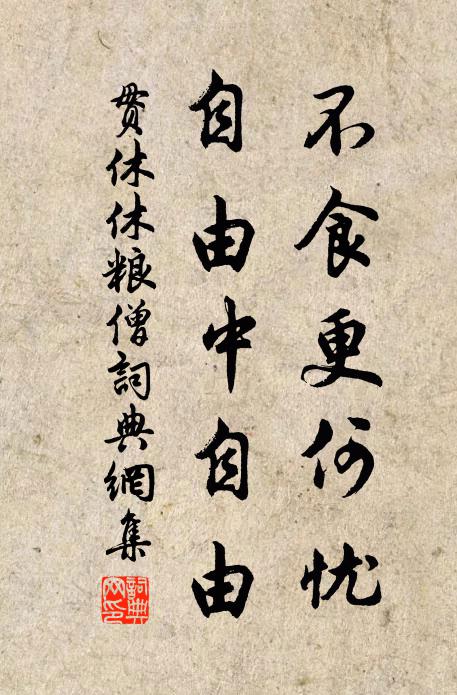 不食更何忧
自由中自由
贯休休粮僧詞典網集
詞典网印